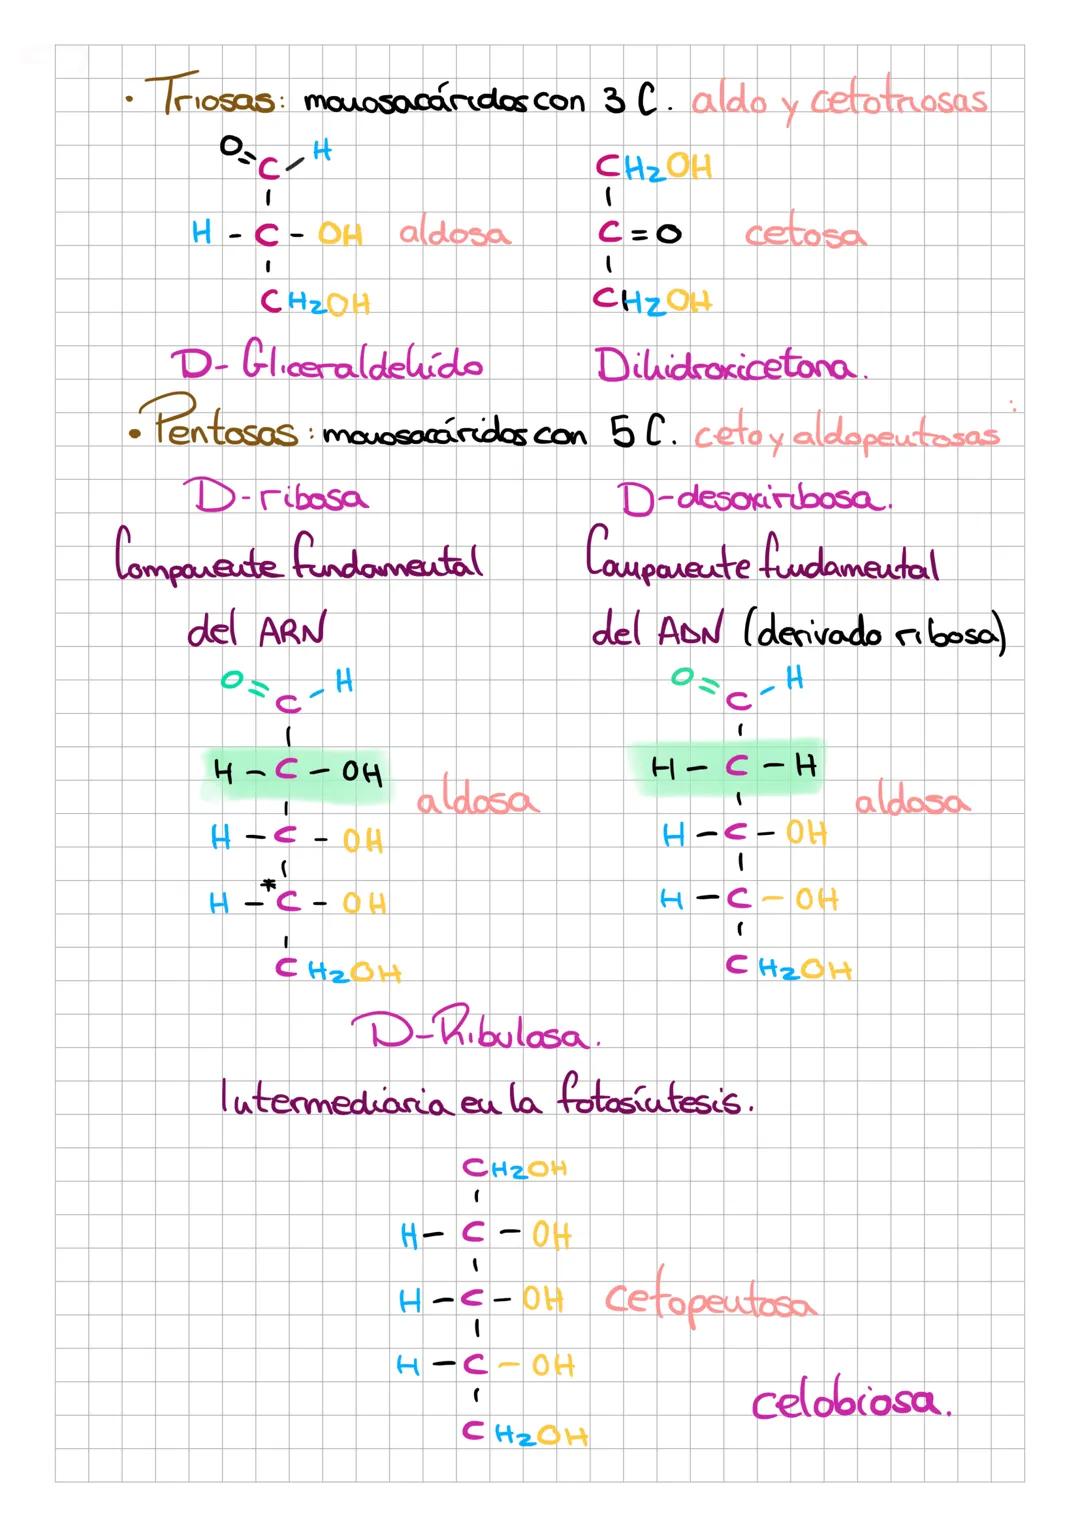 · Triosas: monosacáridos con 3 C. aldo y cetotriosas
O = C - H
H - C - OH aldosa
CH2OH
CH2OH
C = O cetosa
CH2OH
D- Gliceraldehído Dihidroxicetona.
· Pentosas: monosacáridos con 5 C. ceto y aldopentosas
D-ribosa D-desoxiribosa.
Componente fundamental Componente fundamental
del ARN del ADN (derivado ribosa)
O = C - H
H - C - OH
aldosa
H - C - OH
H - *C - OH
CH2OH
O = C - H
H - C - H
aldosa
H - C - OH
H - C - OH
CH2OH
D-Ribulosa.
Intermediaria en la fotosíntesis.
CH2OH
H - C - OH
H - C - OH cetopentosa
H - C - OH
CH2OH
celobiosa.